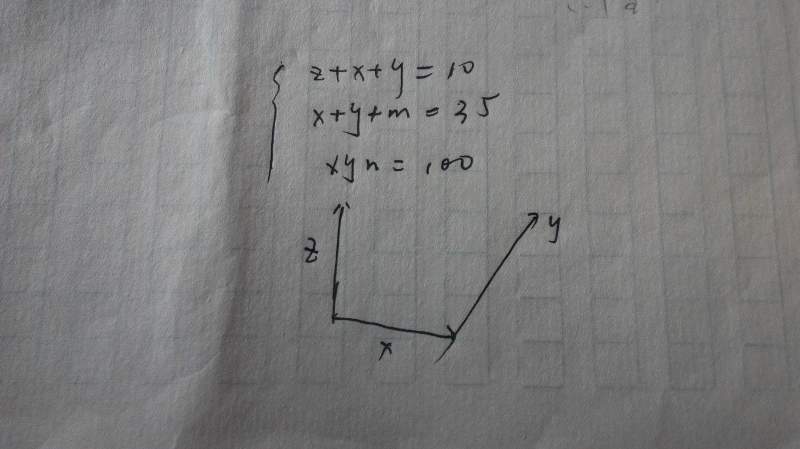 z+x+y=10
x+y+m=35
xyn=100
z
y
x